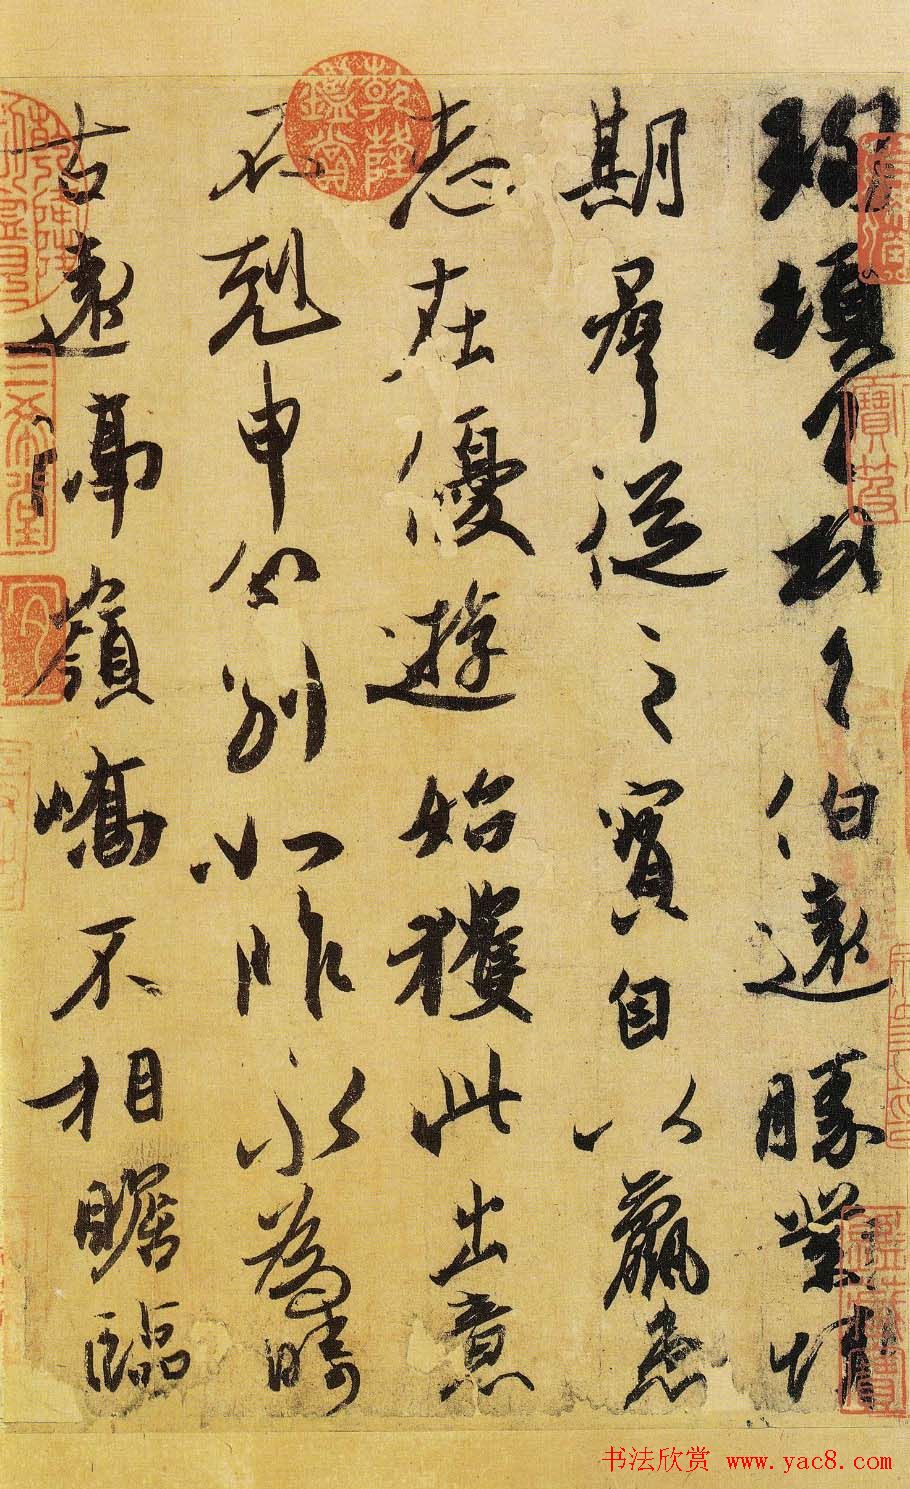 珣頓首頓首伯遠勝業情
期羣從之寶自以羸患
志在優遊始獲此出意
不剋申分別如昨永為疇
古遠隔嶺嶠不相瞻臨
乾隆鑑賞
三希堂
書法欣賞 www.yac8.com